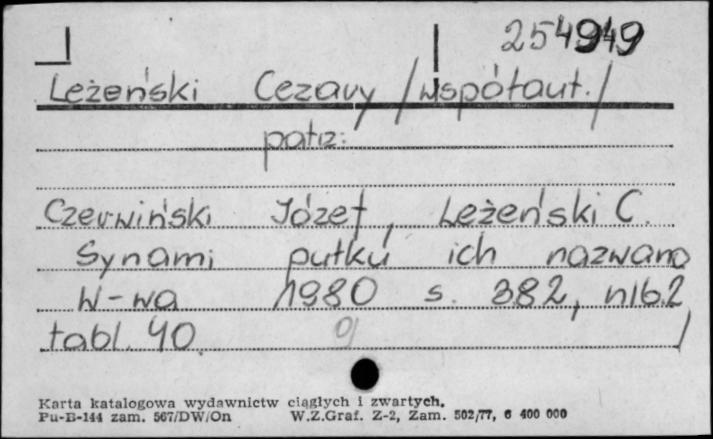 254949
Leżeński Cezary /współaut./
patrz:
Czerwiński Józef, Leżeński C.
Synami pułku ich nazwano
W-wa 1980 s. 382, nlb.2,
tabl. 40.
Karta katalogowa wydawnictw ciągłych i zwartych.
Pu-B-144 zam. 567/DW/On W.Z.Graf. Z-2, Zam. 502/77, 6 400 000